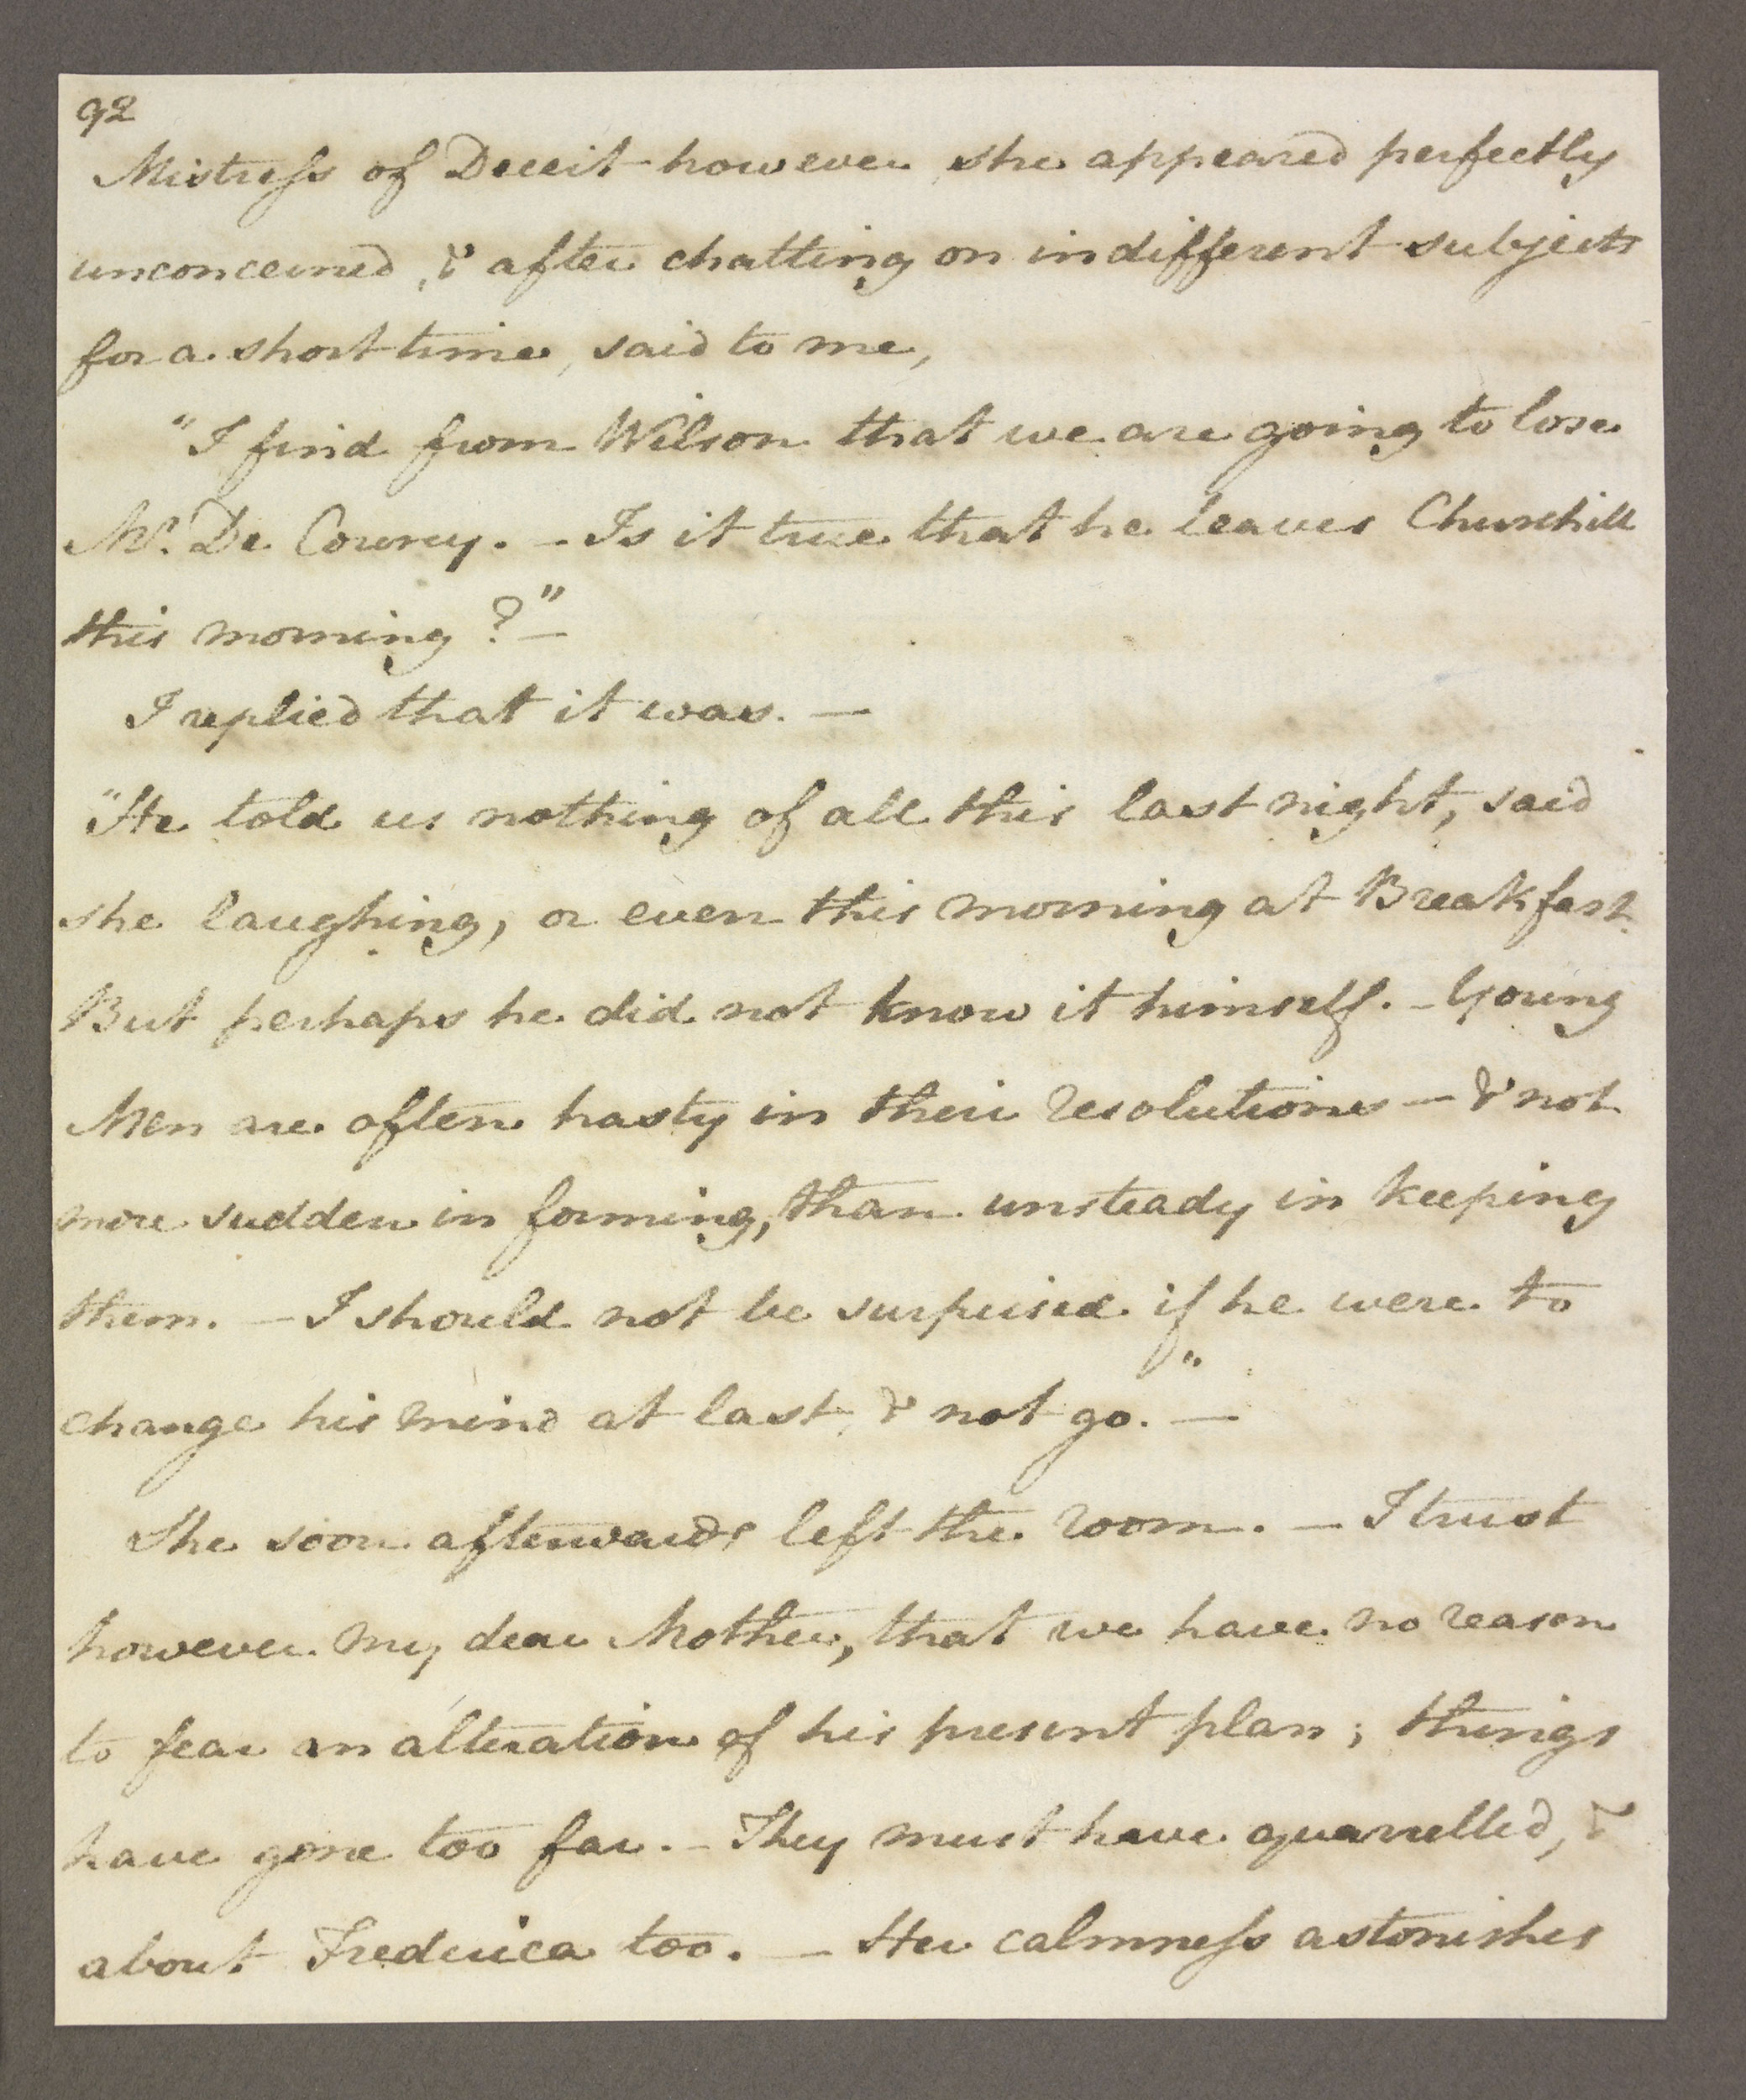 92
Mistress of Deceit however she appeared perfectly
unconcerned, & after chatting on indifferent subjects
for a short time, said to me,
"I find from Wilson that we are going to lose
Mr. De Courcy. — Is it true that he leaves Churchill
this morning?" —
I replied that it was. —
"He told us nothing of all this last night, said
she laughing, or even this morning at Breakfast.
But perhaps he did not know it himself. — Young
Men are often hasty in their resolutions — & not
more sudden in forming, than unsteady in keeping
them. — I should not be surprised if he were to
change his mind at last, & not go." —
She soon afterwards left the room. — I trust
however my dear Mother, that we have no reason
to fear an alteration of his present plan; things
have gone too far. — They must have quarrelled, &
about Frederica too. — Her calmness astonishes